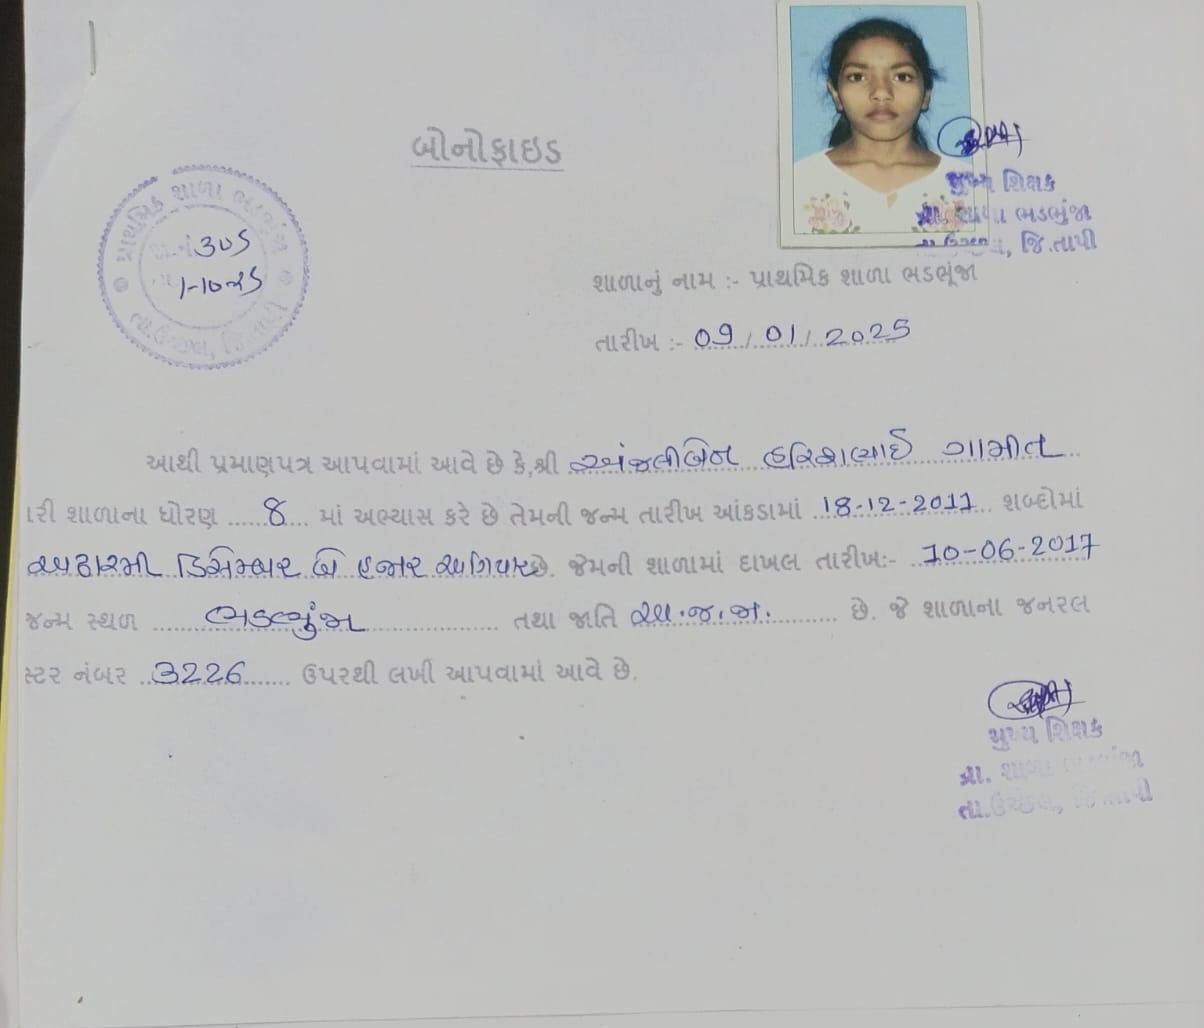 બોનોફાઇડ
પ્રાથમિક શાળા ભડભુંજા
305
1-10-25
મુખ્ય શિક્ષક
પ્રા. શાળા ભડભુંજા
જિ.તાપી
શાળાનું નામ :- પ્રાથમિક શાળા ભડભૂંજા
તારીખ :- 09/01/2025
આથી પ્રમાણપત્ર આપવામાં આવે છે કે,શ્રી અંજલીબેન હરિશભાઈ ગામીત
રી શાળાના ધોરણ 8 માં અભ્યાસ કરે છે તેમની જન્મ તારીખ આંકડામાં 18-12-2011 શબ્દોમાં
અઢારમી ડિસેમ્બર બે હજાર અગિયાર છે. જેમની શાળામાં દાખલ તારીખ:- 10-06-2017
જન્મ સ્થળ ભડભુંજા તથા જાતિ અ.જ.જા. છે. જે શાળાના જનરલ
સ્ટર નંબર 3226 ઉપરથી લખી આપવામાં આવે છે.
મુખ્ય શિક્ષક
પ્રા. શાળા ભડભુંજા
તા.ઉચ્છલ, જિ.તાપી